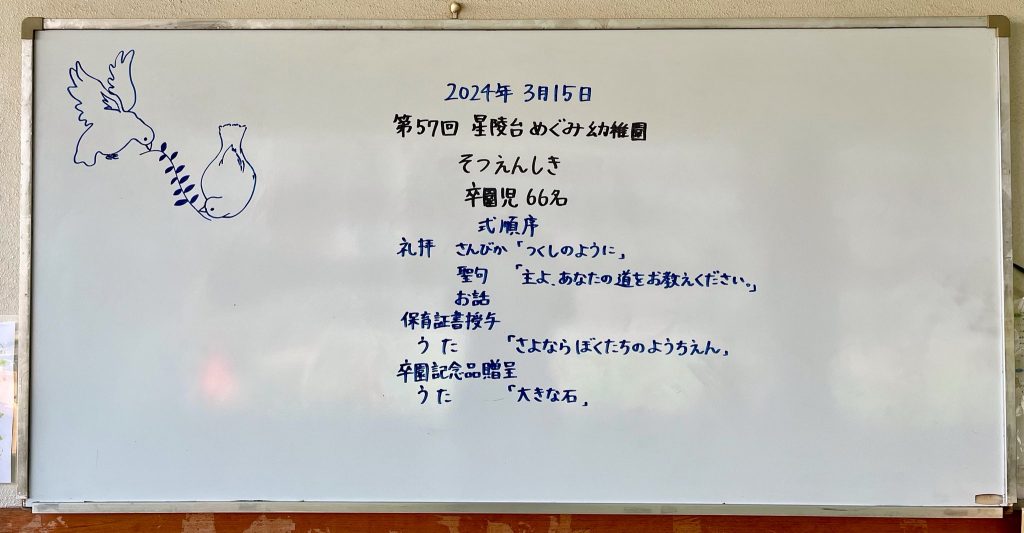 2024年 3月15日
第57回 星陵台めぐみ幼稚園
そつえんしき
卒園児 66名
式順序
礼拝 さんびか「つくしのように」
聖句 「主よ、あなたの道をお教えください。」
お話
保育証書授与
うた 「さよならぼくたちのようちえん」
卒園記念品贈呈
うた 「大きな石」